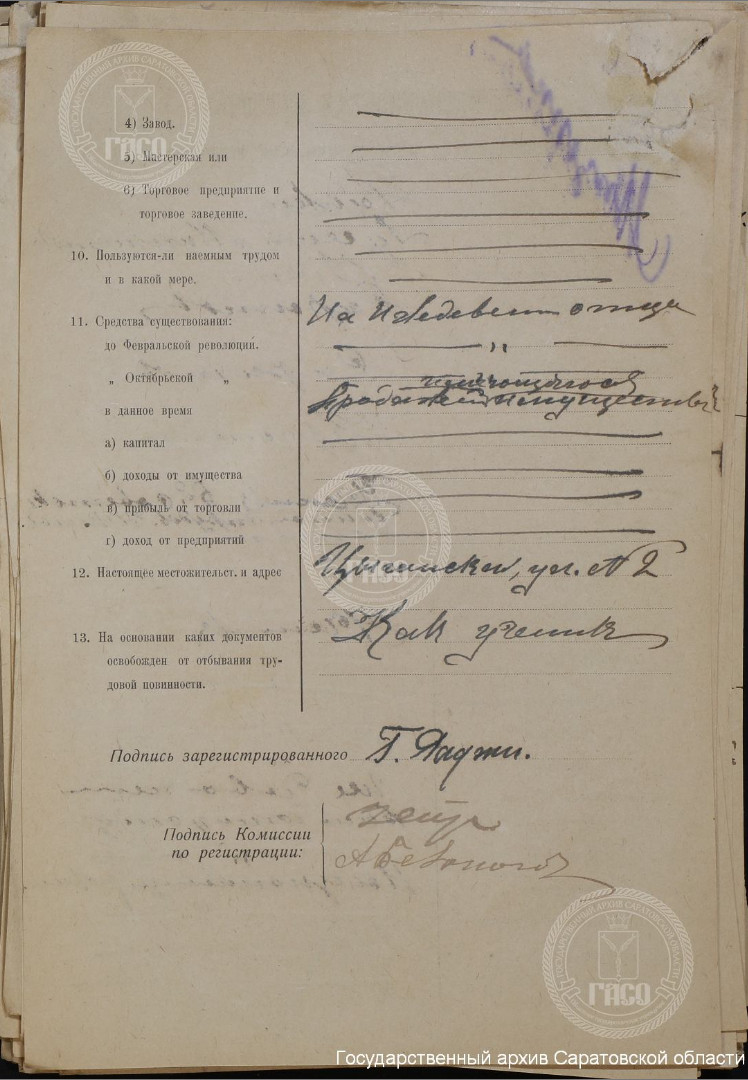 ГОСУДАРСТВЕННЫЙ АРХИВ САРАТОВСКОЙ ОБЛАСТИ
ГАСО
4) Завод.
5) Мастерская или
6) Торговое предприятие и
торговое заведение.
10. Пользуются-ли наемным трудом
и в какой мере.
11. Средства существования: На иждевении отца
до Февральской революции. „
„ Октябрьской „ имеющегося
в данное время Продажей имущества
а) капитал
б) доходы от имущества
в) прибыль от торговли
г) доход от предприятий
ГАСО
12. Настоящее местожительст. и адрес Цыганская, ул. № 2
13. На основании каких документов Как ученик
освобожден от отбывания тру-
довой повинности.
Подпись зарегистрированного Г. Паджи.
Подпись Комиссии
по регистрации:
ГОСУДАРСТВЕННЫЙ АРХИВ САРАТОВСКОЙ ОБЛАСТИ
ГАСО
Государственный архив Саратовской области